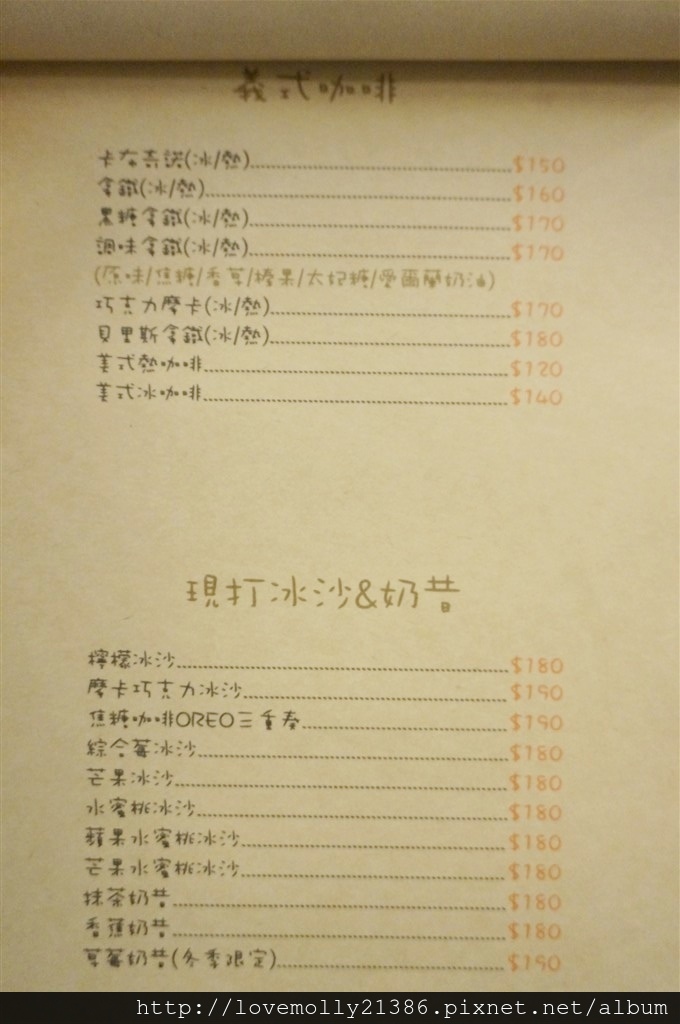 義式咖啡
卡布奇諾(冰/熱)........$150
拿鐵(冰/熱)........$160
黑糖拿鐵(冰/熱)........$170
調味拿鐵(冰/熱)........$170
(原味/焦糖/香草/榛果/太妃糖/愛爾蘭奶油)
巧克力摩卡(冰/熱)........$170
貝里斯拿鐵(冰/熱)........$180
美式熱咖啡........$120
美式冰咖啡........$140
現打冰沙&奶昔
檸檬冰沙........$180
摩卡巧克力冰沙........$190
焦糖咖啡OREO三重奏........$190
綜合莓冰沙........$180
芒果冰沙........$180
水蜜桃冰沙........$180
蘋果水蜜桃冰沙........$180
芒果水蜜桃冰沙........$180
抹茶奶昔........$180
香蕉奶昔........$180
草莓奶昔(冬季限定)........$190
http://lovemolly21386.pixnet.net/album